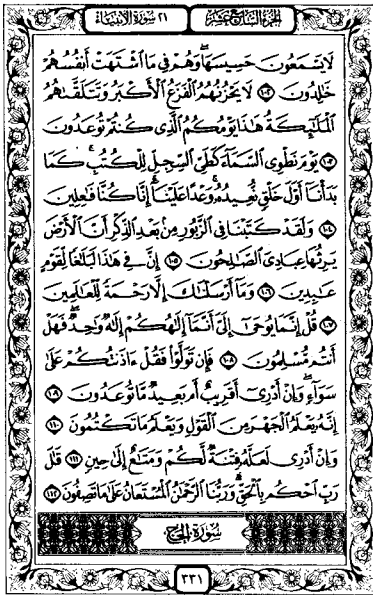 الجزء السابع عشر ٢١ سورة الأنبياء
لَا يَسْمَعُونَ حَسِيسَهَا وَهُمْ فِي مَا اشْتَهَتْ أَنْفُسُهُمْ
خَالِدُونَ ١٠٢ لَا يَحْزُنُهُمُ الْفَزَعُ الْأَكْبَرُ وَتَتَلَقَّاهُمُ
الْمَلَائِكَةُ هَذَا يَوْمُكُمُ الَّذِي كُنْتُمْ تُوعَدُونَ
١٠٣ يَوْمَ نَطْوِي السَّمَاءَ كَطَيِّ السِّجِلِّ لِلْكُتُبِ كَمَا
بَدَأْنَا أَوَّلَ خَلْقٍ نُعِيدُهُ وَعْدًا عَلَيْنَا إِنَّا كُنَّا فَاعِلِينَ
١٠٤ وَلَقَدْ كَتَبْنَا فِي الزَّبُورِ مِنْ بَعْدِ الذِّكْرِ أَنَّ الْأَرْضَ
يَرِثُهَا عِبَادِيَ الصَّالِحُونَ ١٠٥ إِنَّ فِي هَذَا لَبَلَاغًا لِقَوْمٍ
عَابِدِينَ ١٠٦ وَمَا أَرْسَلْنَاكَ إِلَّا رَحْمَةً لِلْعَالَمِينَ
١٠٧ قُلْ إِنَّمَا يُوحَى إِلَيَّ أَنَّمَا إِلَهُكُمْ إِلَهٌ وَاحِدٌ فَهَلْ
أَنْتُمْ مُسْلِمُونَ ١٠٨ فَإِنْ تَوَلَّوْا فَقُلْ آذَنْتُكُمْ عَلَى
سَوَاءٍ وَإِنْ أَدْرِي أَقَرِيبٌ أَمْ بَعِيدٌ مَا تُوعَدُونَ ١٠٩
إِنَّهُ يَعْلَمُ الْجَهْرَ مِنَ الْقَوْلِ وَيَعْلَمُ مَا تَكْتُمُونَ ١١٠
وَإِنْ أَدْرِي لَعَلَّهُ فِتْنَةٌ لَكُمْ وَمَتَاعٌ إِلَى حِينٍ ١١١ قَالَ
رَبِّ احْكُمْ بِالْحَقِّ وَرَبُّنَا الرَّحْمَنُ الْمُسْتَعَانُ عَلَى مَا تَصِفُونَ ١١٢
سورة الحج
٣٣١